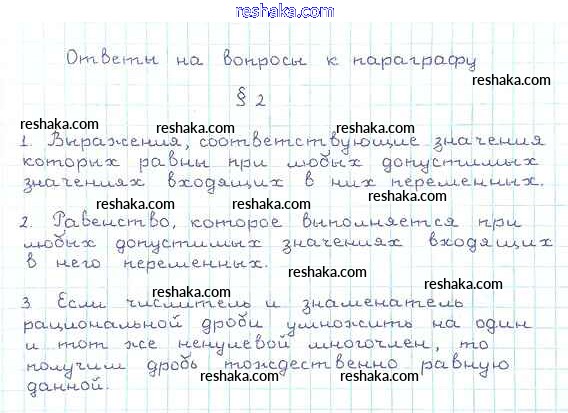 reshaka.com
Ответы на вопросы к параграфу
reshaka.com
§ 2
reshaka.com
reshaka.com
reshaka.com
1. Выражения, соответствующие значения
которых равны при любых допустимых
значениях входящих в них переменных.
reshaka.com
reshaka.com
reshaka.com
2. Равенство, которое выполняется при
любых допустимых значениях входящих
в него переменных.
reshaka.com
reshaka.com
reshaka.com
3 Если числитель и знаменатель
рациональной дроби умножить на один
и тот же ненулевой многочлен, то
получим дробь тождественно равную
данной.
reshaka.com
reshaka.com
reshaka.com